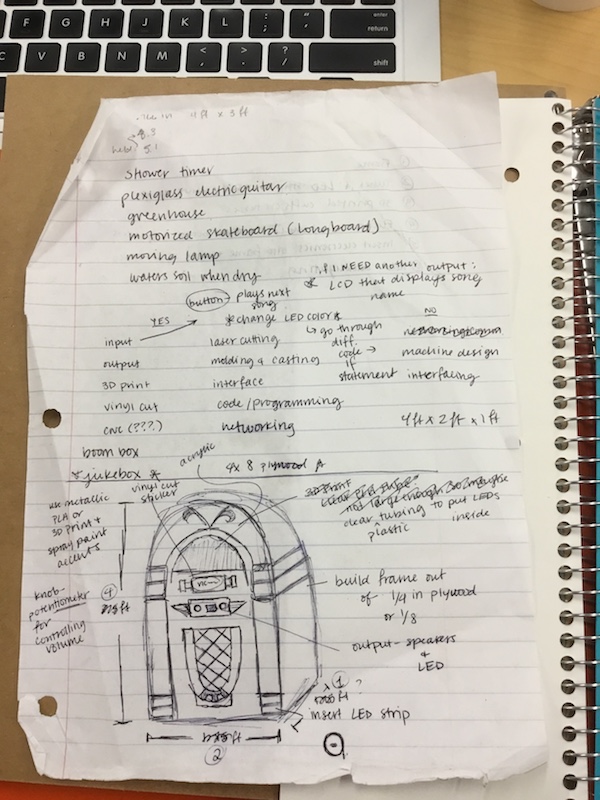 F G H J K L : ; " ' enter return
C V B N M < , > . ? / shift
4 ft x 3 ft
8.3
5.1
shower timer
plexiglass electric guitar
greenhouse
motorized skateboard (longboard)
moving lamp
waters soil when dry
if I NEED another output:
* LCD that displays song name
button - plays next song
YES
* change LED color *
NO
input
laser cutting
↳ go through diff. code → if statement
output
molding & casting
machine design
3D print
interface
interfacing
vinyl cut
code/programming
CNC (???)
networking
4 ft x 2 ft x 1 ft
boom box
* jukebox *
acrylic
4 x 8 plywood *
vinyl cut sticker
3D print
clear tubing to put LEDs inside
plastic
use metallic PLA or 3D print & spray paint accents
knob-potentiometer for controlling volume
4
ft
build frame out of 1/4 in plywood or 1/8
output - speakers & LED
1 ?
ft
insert LED strip
ft
2